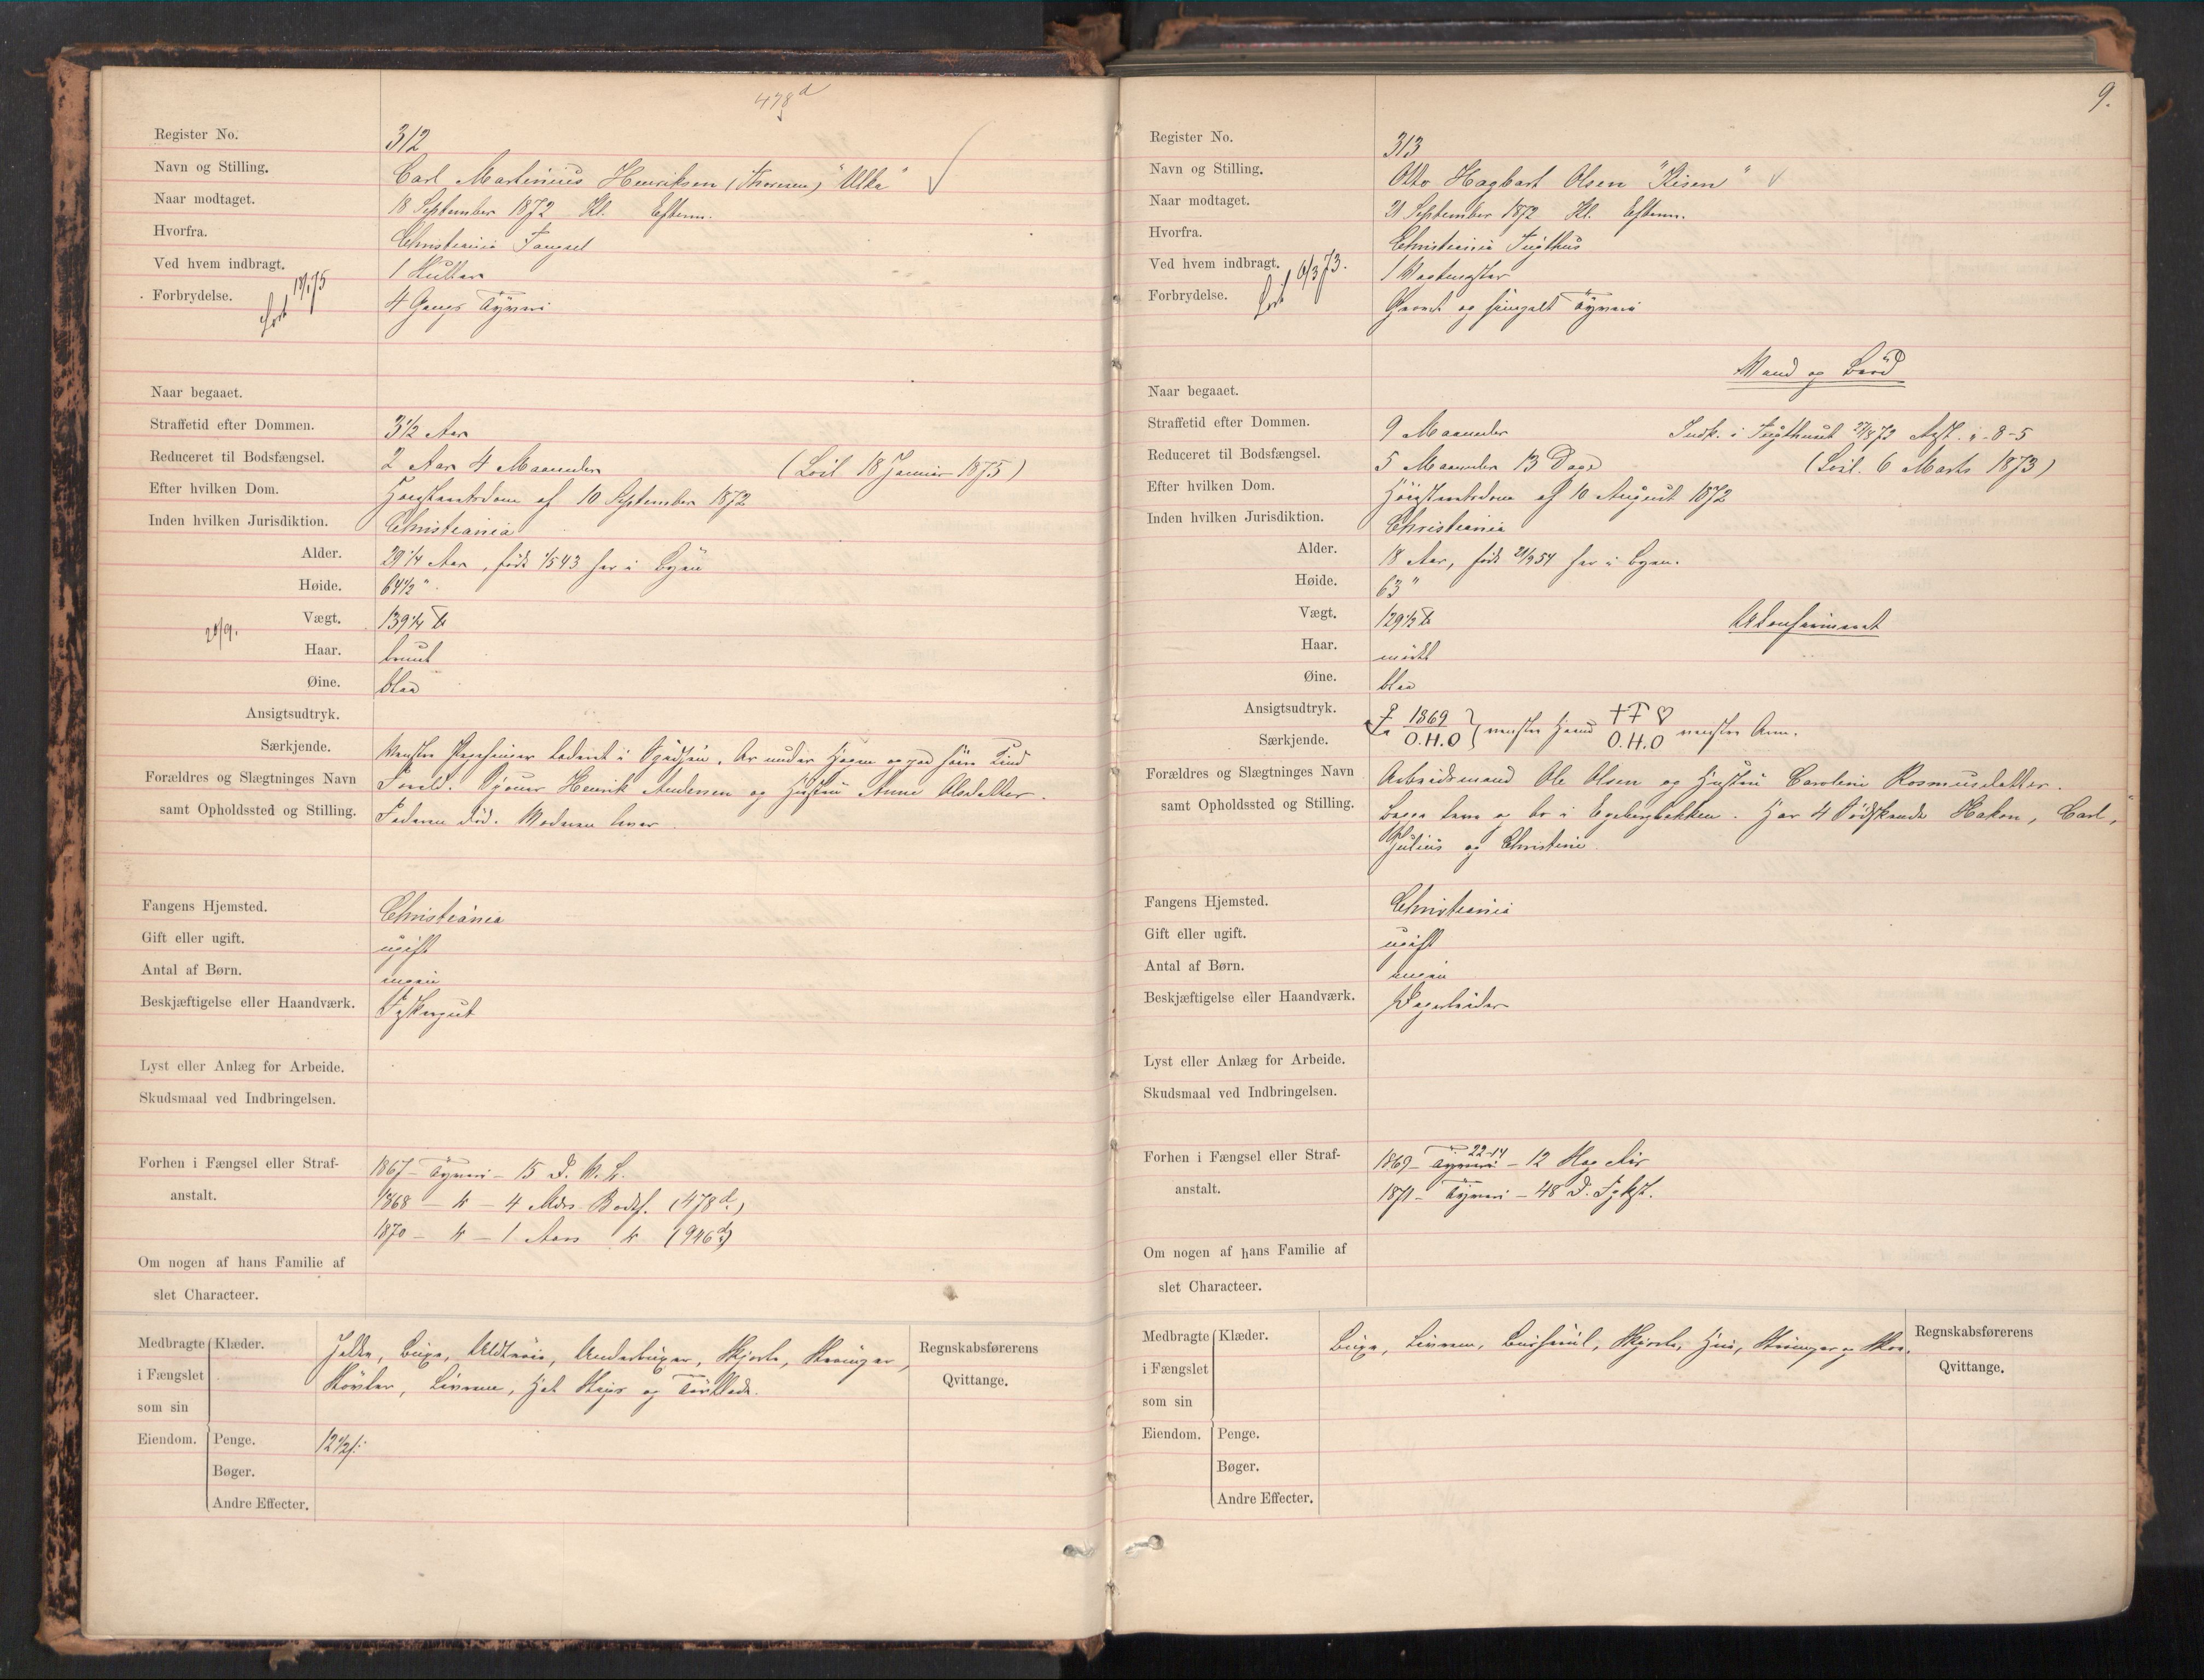 478d
Register No. 312
Navn og Stilling. Carl Martinius Henriksen (Thoresen) "Ulka"
Naar modtaget. 18 September 1872 Kl. Efterm.
Hvorfra. Christiania Fængsel
Ved hvem indbragt. 1 Slutter
Forbrydelse. 4 Gangs Tyveri
fort 18/1 75
Naar begaaet.
Straffetid efter Dommen. 3½ Aar
Reduceret til Bodsfængsel. 2 Aar 4 Maaneder (Løsl 18 Januar 1875)
Efter hvilken Dom. Høiesteretsdom af 10 September 1872
Inden hvilken Jurisdiktion. Christiania
Alder. 29 1/4 Aar, født 1/5 43 her i Byen
Høide. 64½"
Vægt. 139 1/4 ℔
20/9.
Haar. brunt
Øine. blaa
Ansigtsudtryk.
Særkjende. Venstre Pegefinger i Ar under Hagen og paa høire Kind
Forældres og Slægtninges Navn Foræld. Henrik Andersen og Hustru Anne Olsdatter.
samt Opholdssted og Stilling. Faderen død. Moderen lever
Fangens Hjemsted. Christiania
Gift eller ugift. ugift
Antal af Børn. ingen
Beskjæftigelse eller Haandværk. Fiskergut
Lyst eller Anlæg for Arbeide.
Skudsmaal ved Indbringelsen.
Forhen i Fængsel eller Straf- 1867 – Tyveri – 15 D. V. B.
anstalt. 1868 – " – 4 Mdrs Bodsf. (478d.)
1870 – " – 1 Aars " (946d)
Om nogen af hans Familie af
slet Characteer.
Medbragte Klæder. Jakke, Buxe, Uldtrøie, Underbuxer, Skjorte, Strømper,
i Fængslet Støvler, Livrem, Hat og Tørklæde.
som sin
Eiendom. Penge. 12½ ſ:
Bøger.
Andre Effecter.
Regnskabsførerens
Qvittange.
9.
Register No. 313
Navn og Stilling. Otto Hagbart Olsen "Risen"
Naar modtaget. 21 September 1872 Kl. Efterm.
Hvorfra. Christiania Tugthus
Ved hvem indbragt. 1 Vagtmester
Forbrydelse. Grovt og simpelt Tyveri
fort 6/3 73.
Vand og Brød
Naar begaaet.
Straffetid efter Dommen. 9 Maaneder Indk. i Tugthuset 27/8 72 Afst. i 8-5
Reduceret til Bodsfængsel. 5 Maaneder 13 Dage (Løsl. 6 Marts 1873)
Efter hvilken Dom. Høiesteretsdom af 10 August 1872
Inden hvilken Jurisdiktion. Christiania
Alder. 18 Aar, født 21/9 54 her i Byen.
Høide. 63"
Vægt. 129½ ℔ Ukonfirmeret
Haar. mørkt
Øine. blaa
Ansigtsudtryk. 1869
Særkjende. O.H.O venstre Haand O.H.O venstre Arm.
Forældres og Slægtninges Navn Arbeidsmand Ole Olsen og Hustru Caroline Rasmusdatter.
samt Opholdssted og Stilling. Begge leve og bo i Egebergbakken. Har 4 Sødskende Hakon, Carl,
Julius og Christine.
Fangens Hjemsted. Christiania
Gift eller ugift. ugift
Antal af Børn. ingen
Beskjæftigelse eller Haandværk. Dagarbeider
Lyst eller Anlæg for Arbeide.
Skudsmaal ved Indbringelsen.
Forhen i Fængsel eller Straf- 1869 – Tyveri 22-14 – 12 Slag Ris
anstalt. 1871 – Tyveri – 48 D. Fgkst.
Om nogen af hans Familie af
slet Characteer.
Medbragte Klæder. Buxe, Livrem, Skjorte, Hue, Strømper og Sko.
i Fængslet
som sin
Eiendom. Penge.
Bøger.
Andre Effecter.
Regnskabsførerens
Qvittange.